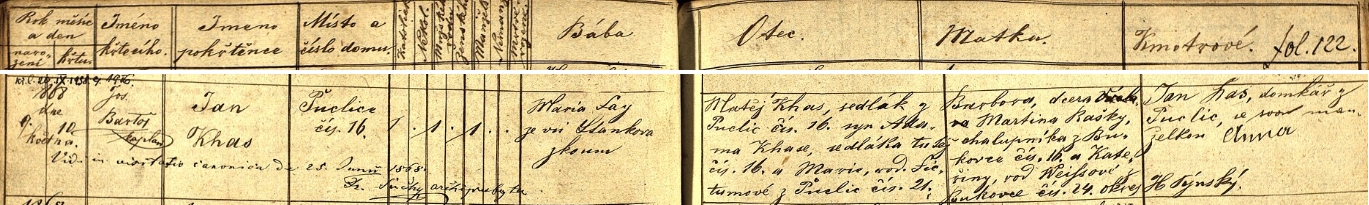 Rok měsíc a den
naro- zení křtu
Jméno křtícího.
Jmeno pokřtěnce
Místo a číslo domu.
Katolické
Nekat.
Mužské
Ženské
Manžel.
Neman.
Bába
Otec.
Matka.
Kmotrové.
fol. 122.
1868
dne
9. 10.
května.
Jos.
Bartoš
kaplan
Jan
Khas
Puclice
čís. 16.
1 . 1 . 1 .
Maria Lay
ze vsi Stankova
zkouш
Matěj Khas, sedlák z
Puclic čís. 16. syn Ada-
ma Khase, sedláka tutéž
čís. 16. a Marie, rod.
tumové z Puclic čís. 21.
Barbora, dcera
Martina Rašky,
chalupníka z Bu-
kovce čís. 16. a Kate-
řiny, rod Weissové z
Bukovce čís. 24. okres
H Týnský.
Jan Has, domkář z
Puclic, se svou man-
želkou Anna
Vidi in visitatione canonica de 25. Junii 1868.
Fr. archipresbyter